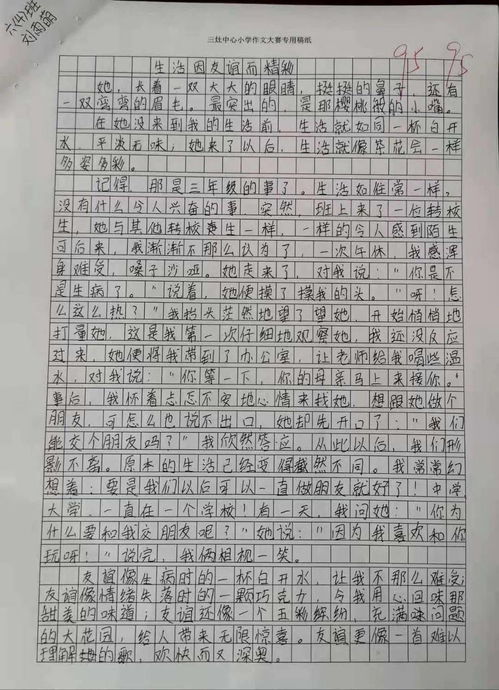 三灶中心小学作文大赛专用稿纸
六(4)班
刘雨萌
95 95
生活因友谊而精彩
她,长着一双大大的眼睛,挺挺的鼻子,还有
一双弯弯的眉毛。最突出的,是那樱桃般的小嘴。
在她没来到我的生活前,生活就如同一杯白开
水,平淡无味;她来了以后,生活就像茶花会一样
多姿多彩。
记得,那是三年级的事了。生活如往常一样,
没有什么令人兴奋的事,突然,班上来了一位转校
生,她与其他转校生一样,一样的令人感到陌生
可后来,我渐渐不那么认为了,一次午休,我感浑
身难受,嗓子沙哑。她走来了,对我说:"你是不
是生病了。"说着,她便摸了摸我的头。"呀!怎
么这么热?"我抬头茫然地望了望她,开始悄悄地
打量她,这是我第一次仔细地观察她,我还没反应
过来,她便将我带到了办公室,让老师给我喝些温
水,对我说:"你等一下,你的母亲马上来接你。"
事后,我怀着忐忑不安地心情来找她,想跟她做个
朋友,可怎么也说不出口,她却先开口了:"我们
能交个朋友吗?"我欣然答应。从此以后,我们形
影不离。原本的生活已经变得截然不同。我常常幻
想着:要是我们以后可以一直做朋友就好了!中学,
大学,一直在一个学校!有一天,我问她:"你为
什么要和我交朋友呢?"她说:"因为我喜欢和你
玩呀!"说完,我俩相视一笑。
友谊像生病时的一杯白开水,让我不那么难受;
友谊像情绪失落时的一颗巧克力,令我用心回味那
甜美的味道;友谊还像一个五彩缤纷,充满味问题
的大花园,给人带来无限惊喜。友谊更像一首难以
理解的歌,欢快而又深奥。